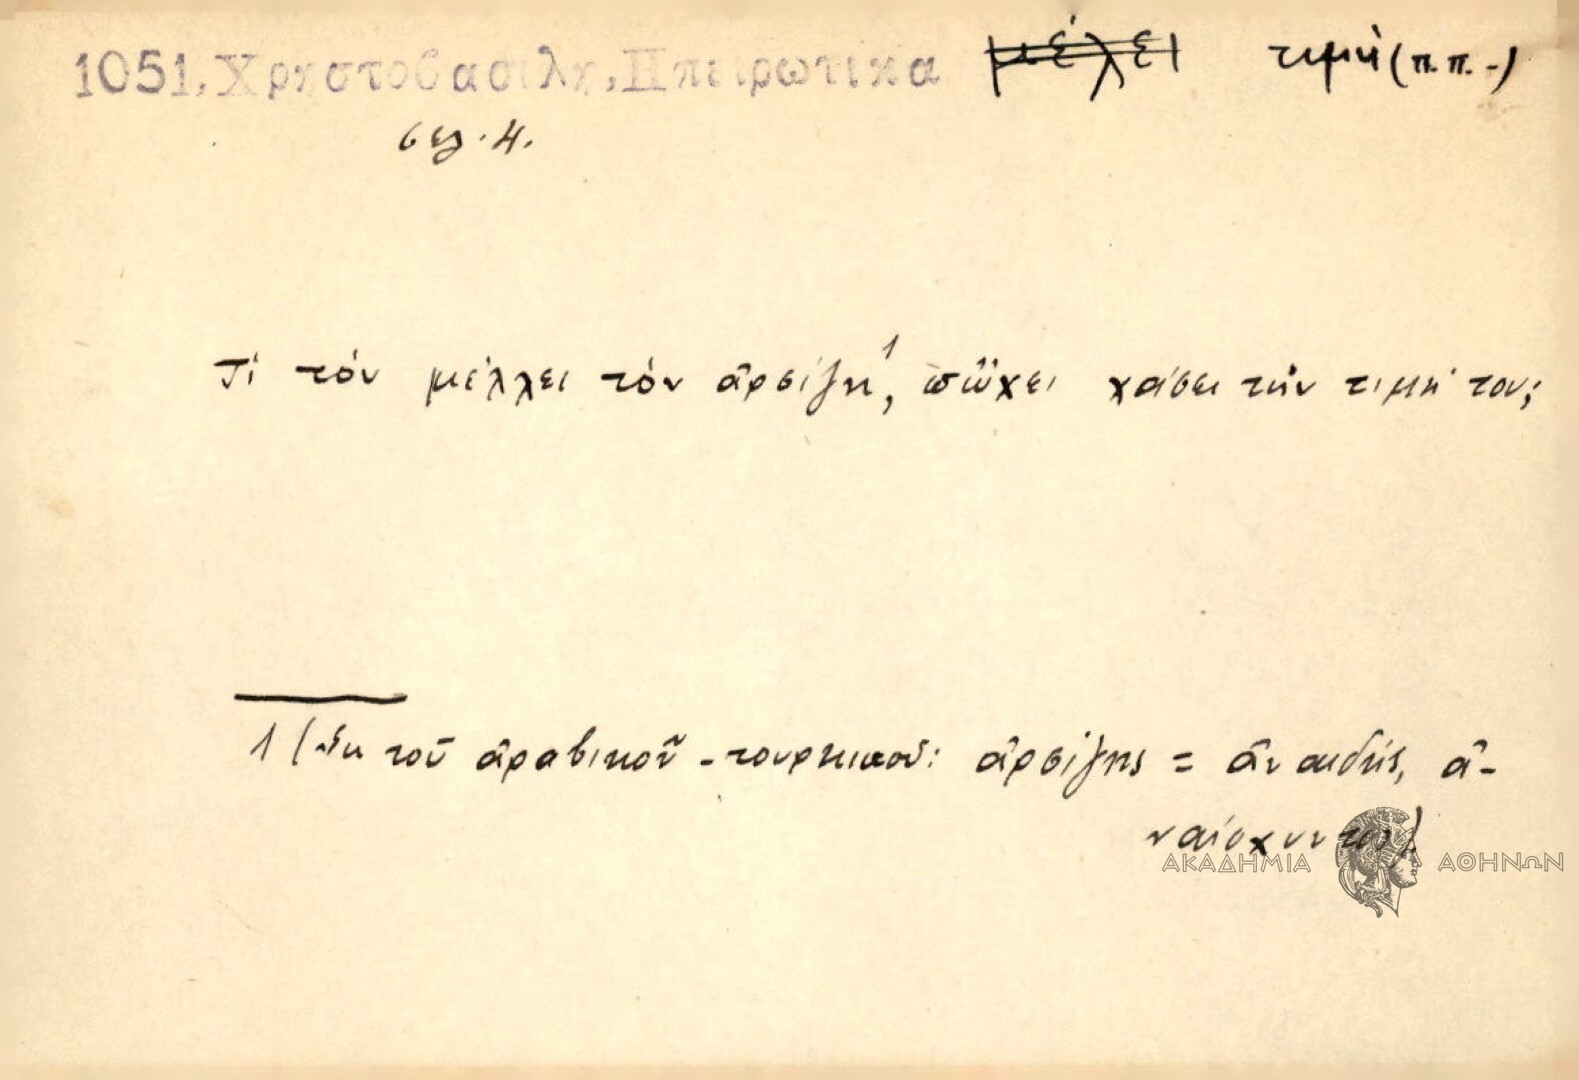 1051, Χρηστοβασίλη, Ηπειρωτικα μέλει τιμή (π.π.-)
σελ. 4.
Τί τόν μέλλει τόν ἀρσίζη¹, πὤχει χάσει τήν τιμή του;
1 (Ἐκ τοῦ ἀραβικοῦ-τουρκικοῦ: ἀρσίζης = ἀναιδής, ἀ-
ναίσχυντος)
ΑΚΑΔΗΜΙΑ ΑΘΗΝΩΝ